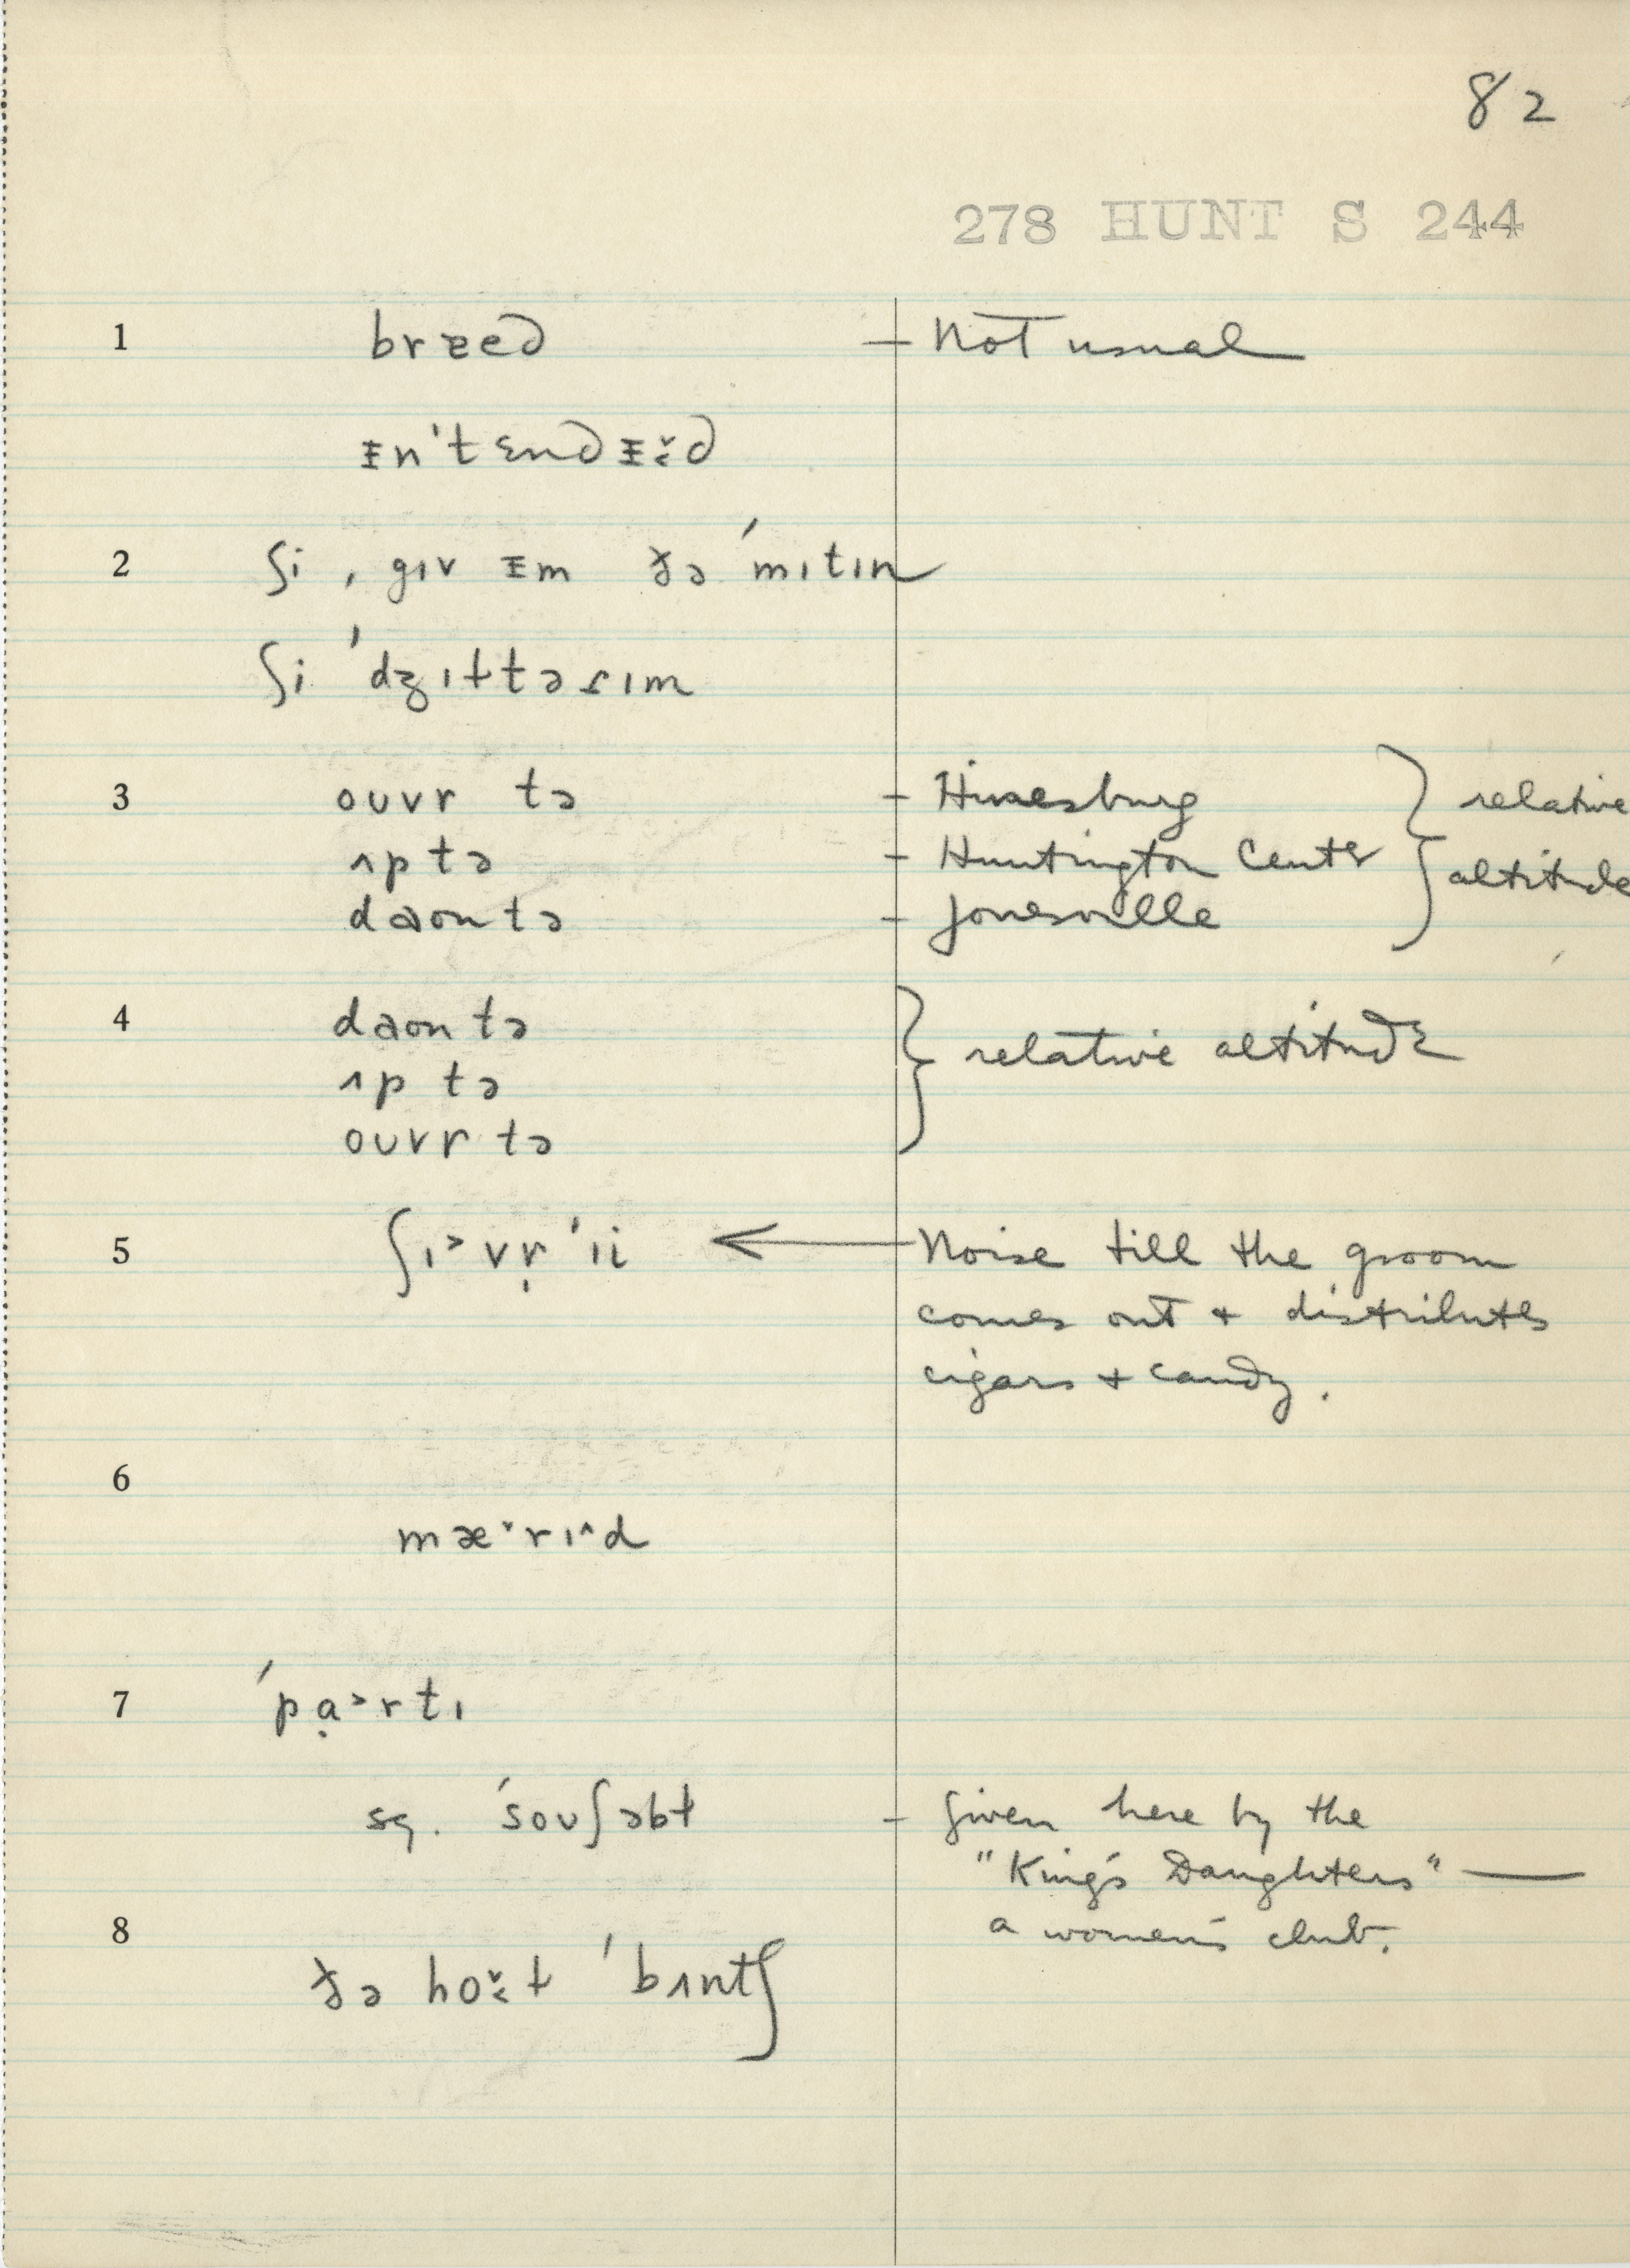 82
278 HUNT S 244
1 brɐed — Not usual
ᵻn'tɛndᵻɪ̌d
2 ʃi ˌgɪv ᵻm ðə ˈmɪtɪn
ʃi ˈdʒɪɫtəɾɪm
3 oʊvr tə – Hinesburg } relative
ʌp tə – Huntington Center altitude
daʊn tə – Jonesville
4 daʊn tə } relative altitude
ʌp tə
oʊvr tə
5 ʃɪ˃vr̩ˈɪi ← Noise till the groom
comes out + distributes
cigars + candy.
6
mæ˅rɪ˄d
7 ˈpạ˃rtɪ
sq. ˈsoʊʃəbɫ – Given here by the
"King's Daughters" —
8 a women's club.
ðə hoʊ̌ɫ ˈbʌntʃ